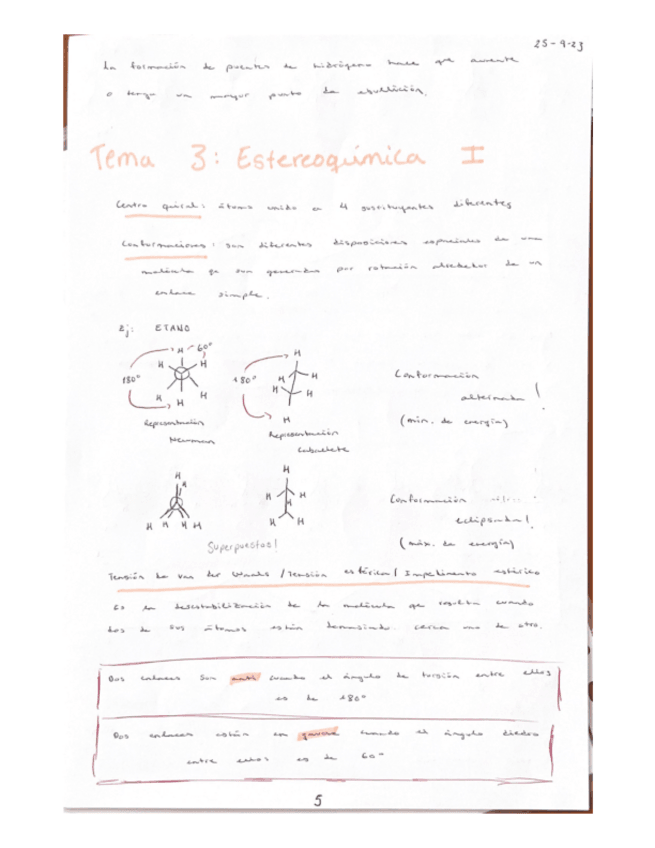 25-9-23
La formación de puentes de hidrógeno hace que aumente
o tenga un mayor punto de ebullición.
Tema 3: Estereoquímica I
Centro quiral: átomo unido a 4 sustituyentes diferentes
Conformaciones: son diferentes disposiciones espaciales de una
molécula que son generadas por rotación alrededor de un
enlace simple.
Ej: ETANO
H 60°
H H
180°
H H
H
Representación
Newman
H
H H
180°
H H
H
Representación
Caballete
Conformación
alternada!
(mín. de energía)
H
H
H H H H
H
H
H H
Superpuestos!
Conformación
eclipsada!
(máx. de energía)
Tensión de Van der Waals / Tensión estérica / Impedimento estérico
Es la desestabilización de la molécula que resulta cuando
dos de sus átomos están demasiado cerca uno de otro.
Dos enlaces son anti cuando el ángulo de torsión entre ellos
es de 180°
Dos enlaces están en gauche cuando el ángulo diedro
entre ellos es de 60°
5